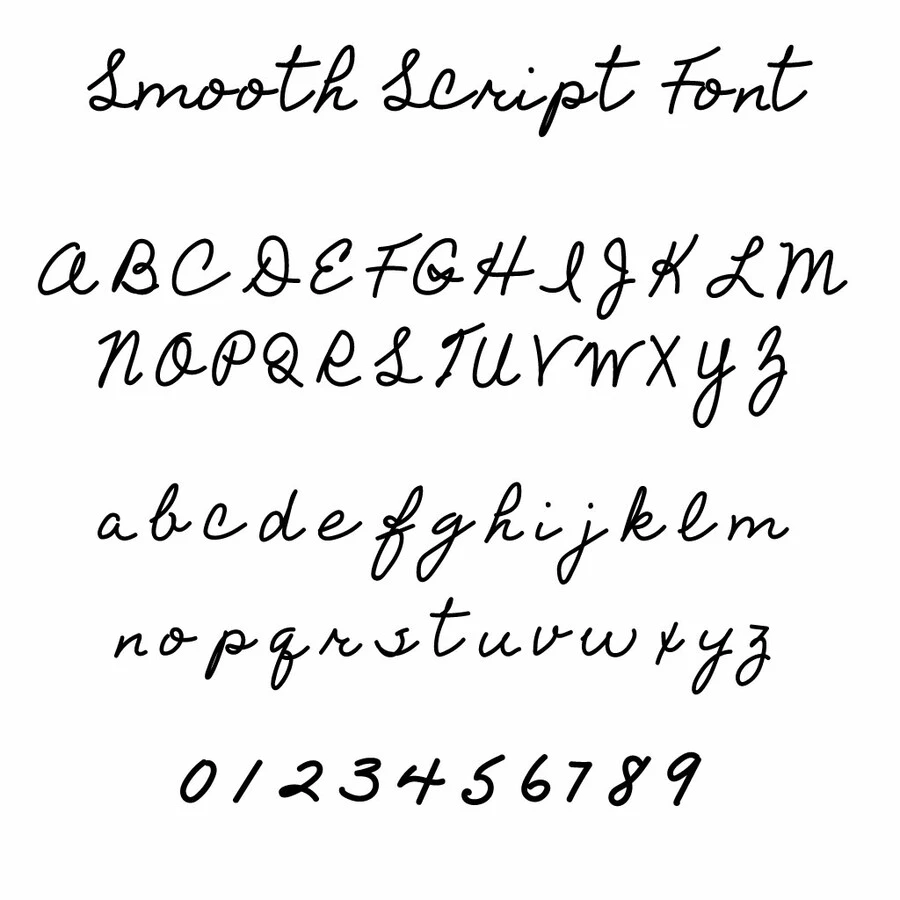 Smooth Script Font
A B C D E F G H I J K L M
N O P Q R S T U V W X Y Z
a b c d e f g h i j k l m
n o p q r s t u v w x y z
0 1 2 3 4 5 6 7 8 9